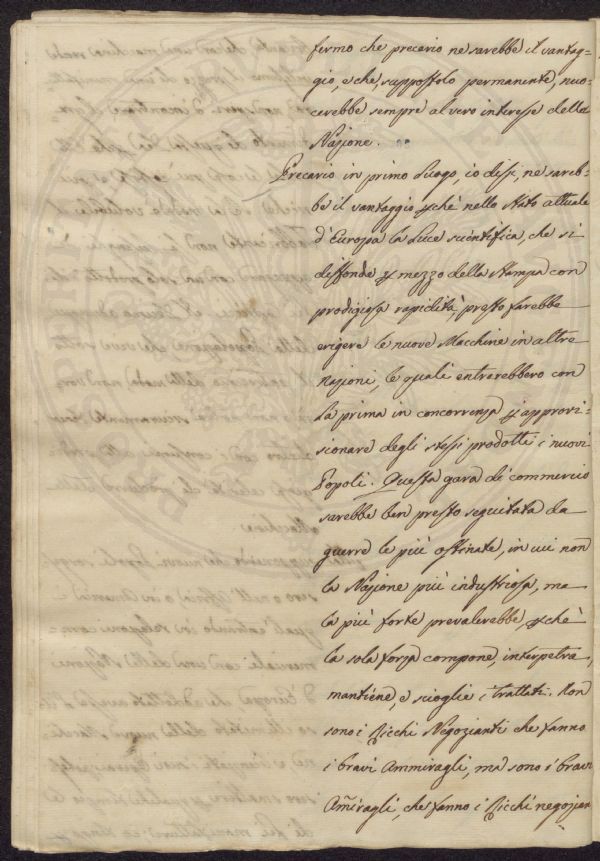 fermo che precario ne sarebbe il vantag-
gio, e che, suppostolo permanente, nuo-
cerebbe sempre al vero interesse della
Nazione.
Precario in primo luogo, io dissi, ne sareb-
be il vantaggio pchè nello stato attuale
d'Europa la Luce scientifica, che si
diffonde p mezzo della stampa con
prodigiosa rapidità, presto farebbe
erigere le nuove Macchine in altre
nazioni, le quali entrarebbero con
la prima in concorrenza p approvi-
sionare degli stessi prodotti i nuovi
Popoli. Questa gara di commercio
sarebbe ben presto seguitata da
guerre le più ostinate, in cui non
la Nazione più industriosa, ma
la più forte prevalerebbe pchè
la sola forza compone, interpetra,
mantiene, e scioglie i trattati. Non
sono i Ricchi Negozianti che fanno
i bravi Ammiragli, ma sono i bravi
Am̃iragli, che fanno i Ricchi negozian